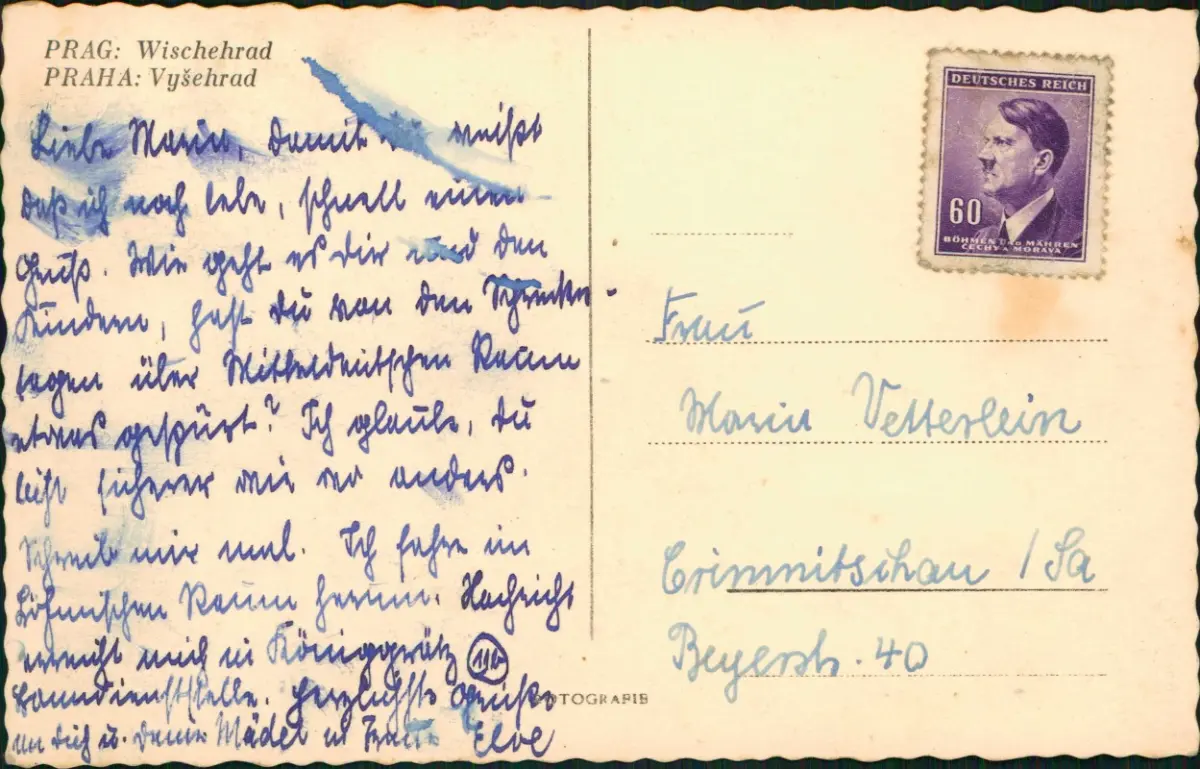 PRAG: Wischehrad
PRAHA: Vyšehrad
Liebe Marie, damit du weißt
daß ich noch lebe, schnell einen
Gruß. Wie geht es Dir und den
Kindern, hast Du von den Schreckens-
tagen über Mitteldeutschen Raum
etwas gespürt? Ich glaube, Du
bist sicherer wie wo anders.
Schreib mir mal. Ich fahre im
böhmischen Raum herum. Nachricht
erreicht mich in Königgrätz
Banndienststelle. Herzlichste Grüße
an Dich u. Deine Mädel
DEUTSCHES REICH
60
BÖHMEN UND MÄHREN
ČECHY A MORAVA
Frau
Marie Vetterlein
Crimmitschau / Sa
Beyerstr. 40
FOTOGRAFIE